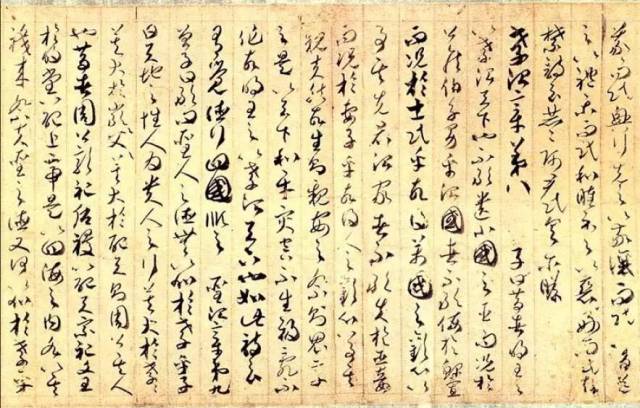 義而民興行先之以敬讓而民不爭導
之以禮樂而民和睦示之以好惡而民知
禁詩云赫赫師尹民具爾瞻
孝治章第八 子曰昔者明王之
以孝治天下也不敢遺小國之臣而況於
公侯伯子男乎治國者不敢侮於鰥寡
而況於士民乎故得萬國之歡心以
事其先君治家者不敢失於臣妾
而況於妻子乎故得人之歡心以事其
親夫然故生則親安之祭則鬼享
之是以天下和平災害不生禍亂不
作故明王之以孝治天下也如此詩云
有覺德行四國順之 聖治章第九
曾子曰敢問聖人之德無以加於孝乎子
曰天地之性人為貴人之行莫大於孝〻
莫大於嚴父〻莫大於配天則周公其人
也昔者周公郊祀后稷以配天宗祀文王
於明堂以配上帝是以四海之內各以其
職來祭夫聖人之德又何以加於孝乎